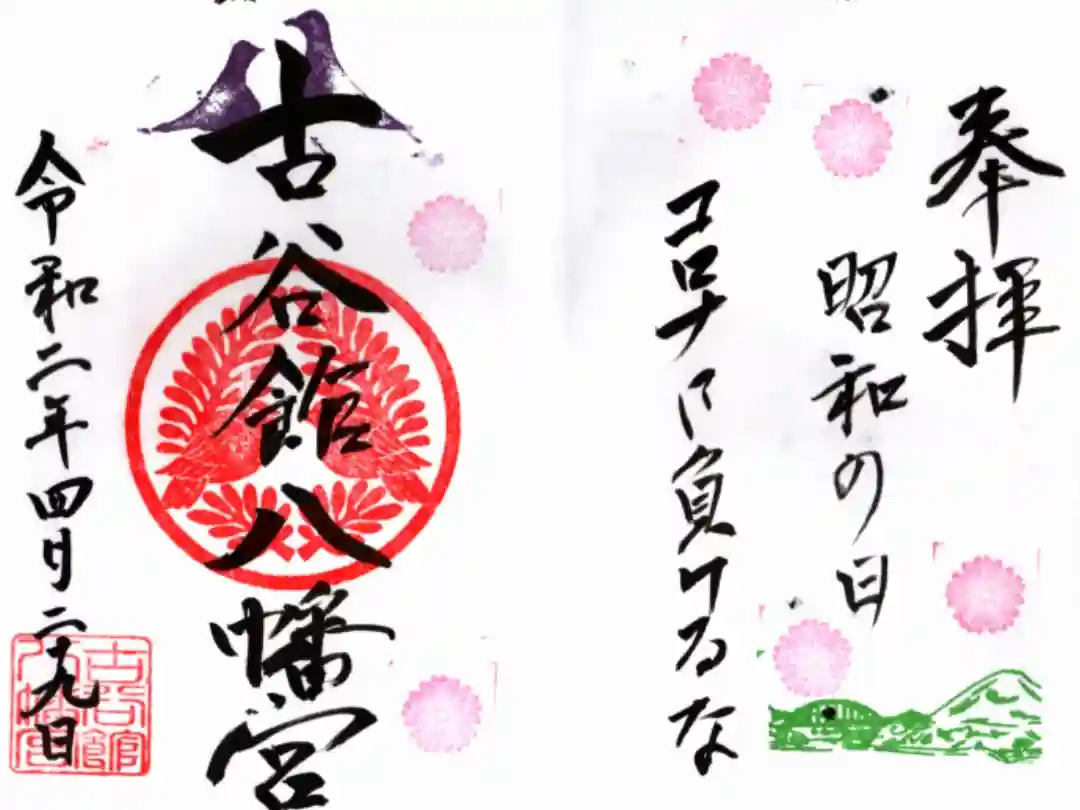 奉拝
昭和の日
コロナに負けるな
古谷館八幡宮
令和二年四月二十九日
古谷館
八幡宮